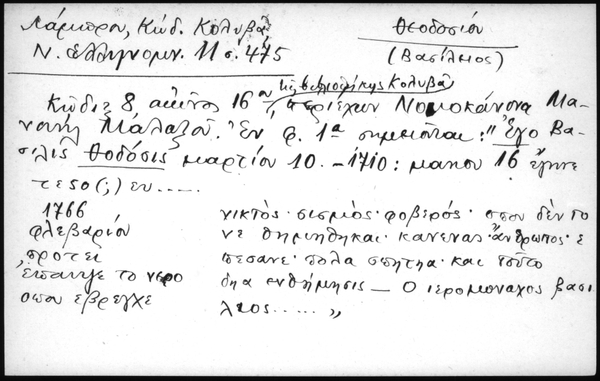 Λάμπρου, Κώδ. Κολυβᾶ
Ν. Ἑλληνομν. 11 σ. 475
Θεοδοσίου
(Βασίλειος)
τῆς βιβλιοθήκης Κολυβᾶ
Κῶδιξ 8 αἰῶνος 16ου, περιέχων Νομοκάνονα Μα-
νουὴλ Μάλαξοῦ. Ἐν φ. 1α σημειοῦται: "Ἐγο Βα-
σιλις Θοδόσις μαρτίου 10. – 1710: μαησυ 16 ἔγηνε
τεσο(;) ευ.....
1766
φλεβαρίου
προτει
ἐπαηξε το νερο
οπου εβρεγχε
νικτὸς· σισμιὸς· φοβερὸς· οπου δὲν το
νε θημιηθηκαι· κανεναν· ἄνθρωπος· ε
πεσανε· πολα σπητηα· και τοῦτο
δηα ενθήμησις — Ο ιερομοναχος βασι
λιος......"